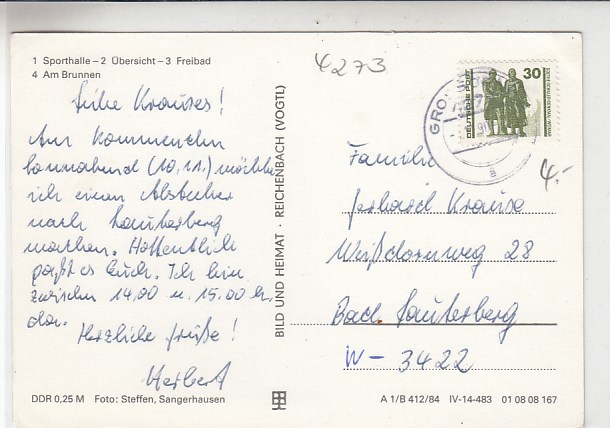 1 Sporthalle – 2 Übersicht – 3 Freibad
4 Am Brunnen
4273
Liebe Krauses!
Am kommenden
Sonnabend (10.11.) möchte
ich einen Abstecher
nach Lauterberg
machen. Hoffentlich
paßt es Euch. Ich bin
zwischen 14.00 u. 15.00 h,
da.
Herzliche Grüße!
Herbert
DDR 0,25 M Foto: Steffen, Sangerhausen
BILD UND HEIMAT · REICHENBACH (VOGTL)
DEUTSCHE POST
30
GRO
a
4.-
Familie
Gerhard Krause
Weißdornweg 28
Bad Lauterberg
W – 3422
A 1/B 412/84 IV-14-483 01 08 08 167